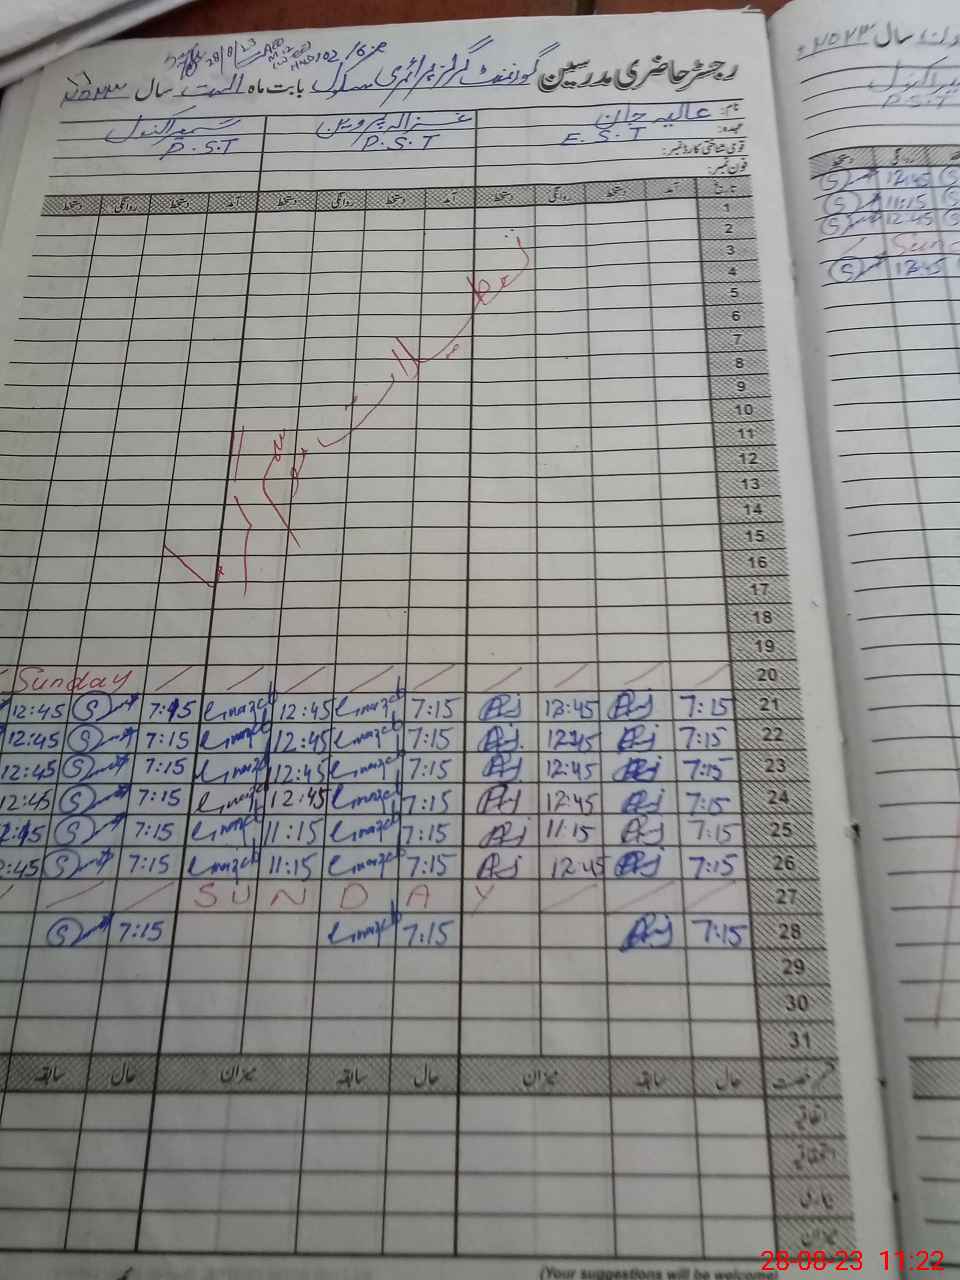 28/8/23
رجسٹر حاضری مدرسین گورنمنٹ گرلز پرائمری سکول بابت ماہ اگست سال ۲۰۲۳
نام: عالیہ جان غزالہ پروین سمیرا کنول
عہدہ: E.S.T P.S.T P.S.T
قومی شناختی کارڈ نمبر:
فون نمبر:
تاریخ آمد دستخط روانگی دستخط آمد دستخط روانگی دستخط آمد دستخط روانگی دستخط
1
2
3
4
5
6
7
8
9
10
11
12
13
14
15
16
17
18
19
تعطیلات موسم گرما
Sunday 20
12:45 S 7:15 12:45 7:15 12:45 7:15 21
12:45 S 7:15 12:45 7:15 12:45 7:15 22
12:45 S 7:15 12:45 7:15 12:45 7:15 23
12:45 S 7:15 12:45 7:15 12:45 7:15 24
S 7:15 11:15 7:15 11:15 7:15 25
2:45 S 7:15 11:15 7:15 12:45 7:15 26
SUNDAY 27
S 7:15 7:15 7:15 28
29
30
31
قسم رخصت حال سابقہ میزان حال سابقہ میزان حال سابقہ
اتفاقیہ
استحقاقیہ
بیماری
میزان
(Your suggestions will be welcome)
سال ۲۰۲۳ء
P.S.T
روانگی دستخط
S 12:45 S
S 11:15 S
S 12:45 S
Sun
S 12:45
28-08-23 11:22